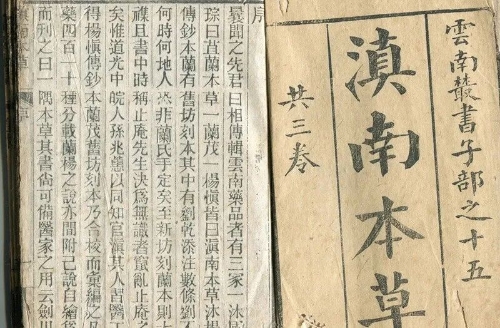 雲南叢書子部之十五
滇南本草
共三卷
序
曩聞之先君曰相傳輯雲南藥品者有三家一沐
琮曰苴蘭本草一蘭茂一楊慎皆曰滇南本草沐楊
傳鈔本蘭有舊坊刻本其中有劉乾添注數條劉不
何時何地人恐非蘭氏手定矣至新坊刻本則
襍且書中時稱止庵先生決為無識者竄亂止庵之
矣惟道光中皖人孫兆蕙以同知官滇其人習醫
得楊慎傳鈔本蘭茂舊坊刻本乃合校而彙編之凡
藥四百一十種分載蘭楊之說亦間附己說自繪
而刊之曰一隅本草其書尚可備醫家之用云劍川